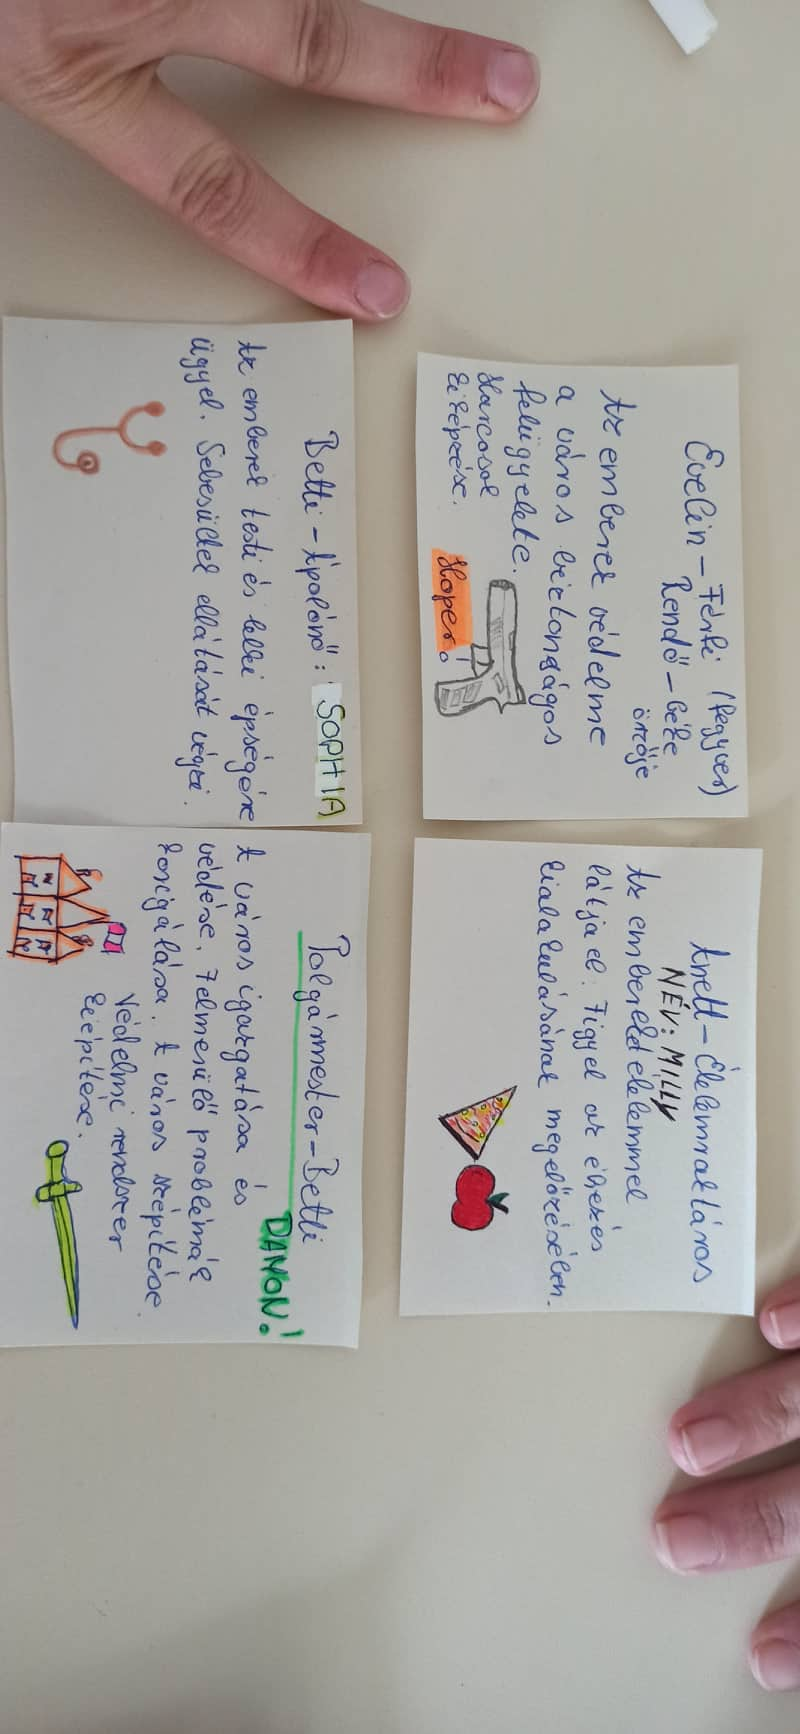 Evelin – Férfi (Fegyver)
Rendő – béke
őrzője
Az emberek védelme
a város biztonságos
felügyelete.
Harcosok
kiképzése.
Hoper!
Anett – Élelemraktáros
NÉV: MILLY
Az embereket élelemmel
látja el. Figyel az éhezés
kialakulásának megelőzésében.
Betti – Ápolónő: SOPHIA
Az emberek testi és lelki épségére
ügyel. Sebesültek ellátását végzi.
Polgármester – Betti
DAMON!
A város igazgatása és
védése. Felmerülő problémák
korrigálása. A város szépítése.
Védelmi rendszer
kiépítése.